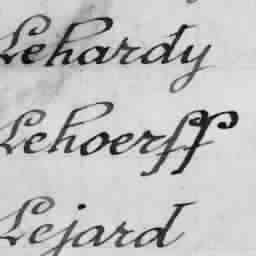 Lehardy
Lehoerff
Lejard